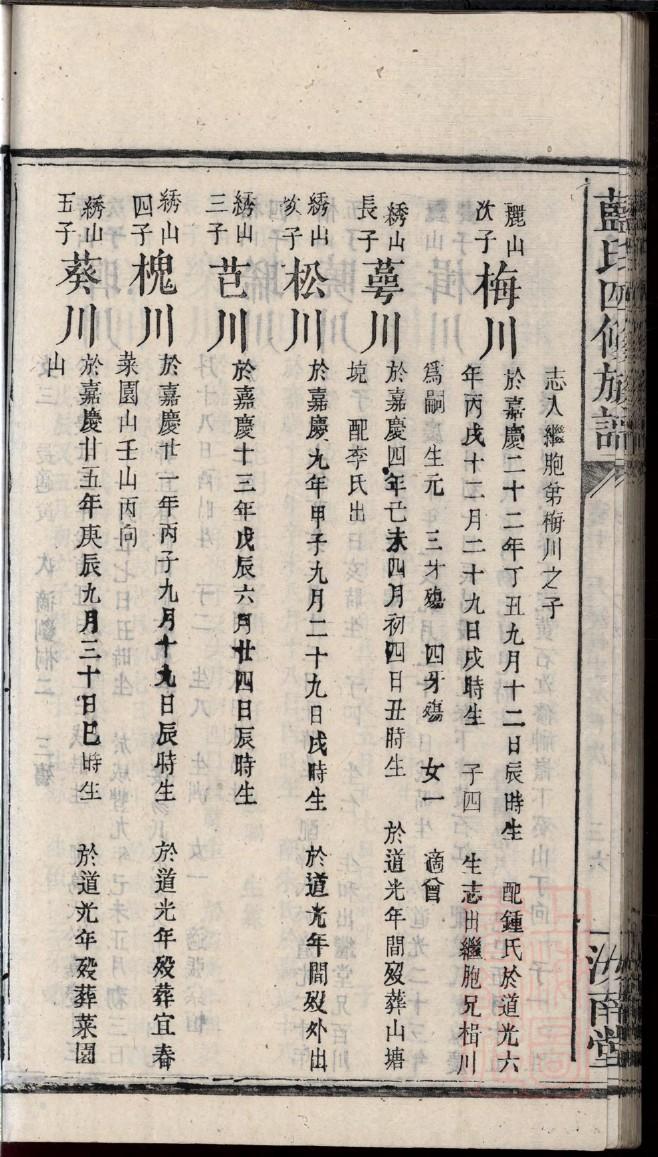 藍氏四修族譜
汝南堂
志入繼胞弟梅川之子
麗山次子梅川 於嘉慶二十二年丁丑九月十二日辰時生 配鍾氏於道光六
年丙戌十二月二十九日戌時生 子四 生志出繼胞兄楫川
為嗣 生元 三牙殤 四牙殤 女一 適曾
綉山長子蕚川 於嘉慶四年己未四月初四日丑時生 於道光年間歿葬山塘
境子 配李氏出
綉山次子松川 於嘉慶九年甲子九月二十九日戌時生 於道光年間歿外出
綉山三子芑川 於嘉慶十三年戊辰六月廿四日辰時生
綉山四子槐川 於嘉慶廿一年丙子九月十九日辰時生 於道光年歿葬宜春
菜園山壬山丙向
綉山五子葵川 於嘉慶廿五年庚辰九月三十日巳時生 於道光年歿葬菜園
山